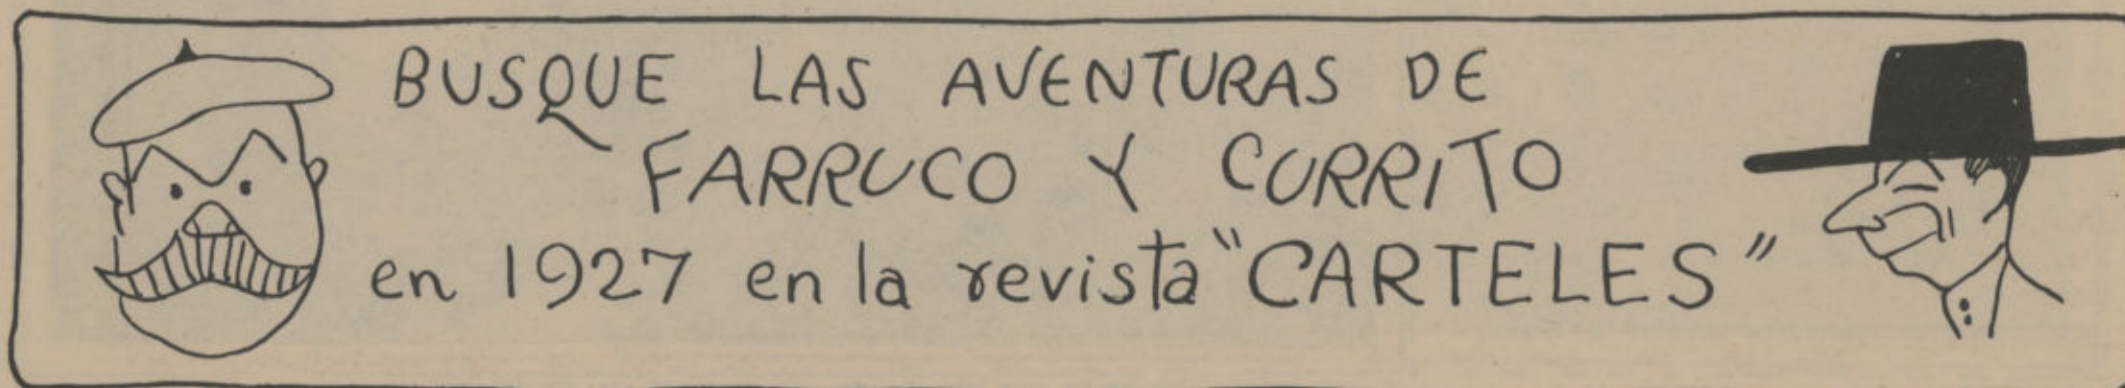 BUSQUE LAS AVENTURAS DE
FARRUCO Y CURRITO
en 1927 en la revista "CARTELES"